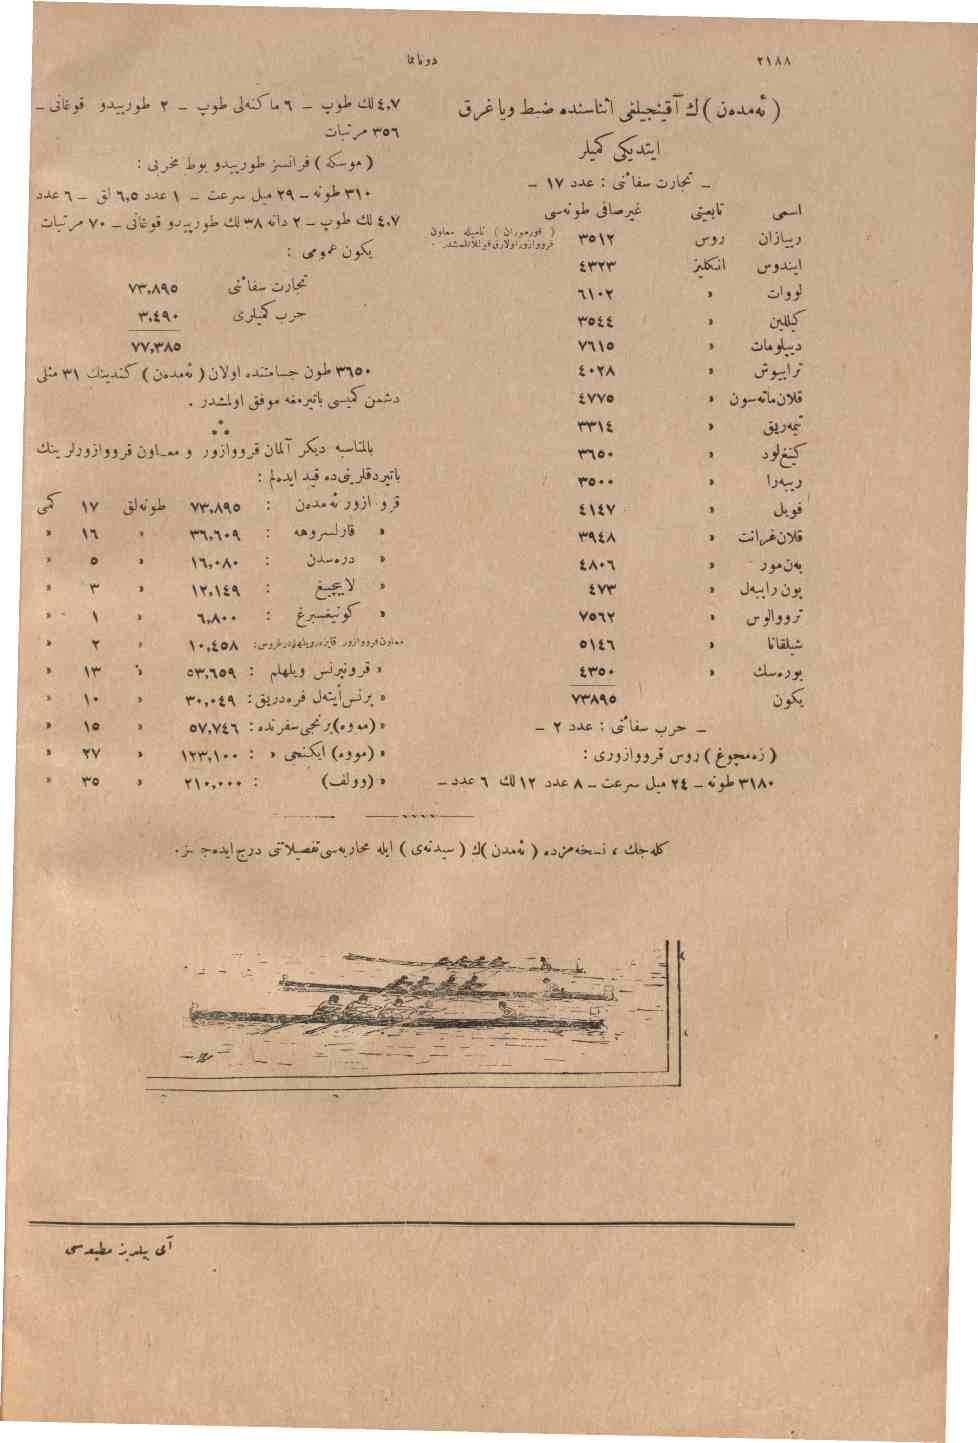 ٢١٨٨
دونانما
( ئه‌مده‌ن ) ك آقينجيلغى اثناسنده ضبط ويا غرق
ايتديكى كميلر
ــ تجارت سفائنى : عدد ١٧ ــ
اسمى تابعيتى غيرصافى طونه‌سى
رييازان روس ٣٥١٢ ( قورموران ) ناميله معاون قرووازور اولارق قوللانلمشدر .
ايندوس انكليز ٤٣٢٣
لووات » ٦١٠٢
كيللين » ٣٥٤٤
ديپلومات » ٧٦١٥
ترايبوش » ٤٠٢٨
قلان‌ماته‌سون » ٤٧٧٥
تيمه‌ريق » ٣٣١٤
كينغ‌لود » ٣٦٥٠
ريبه‌را » ٣٥٠٠
فويل » ٤١٤٧
قلان‌غرانت » ٣٩٤٨
به‌ن‌مور » ٤٨٠٦
پون رابيه‌ل » ٤٧٣
ترووالوس » ٧٥٦٢
شيلقانا » ٥١٤٦
بوره‌سك » ٤٣٥٠
يكون ٧٣٨٩٥
ــ حرب سفائنى : عدد ٢ ــ
( زه‌مچوغ ) روس قرووازورى :
٣١٨٠ طونه ــ ٢٤ ميل سرعت ــ ٨ عدد ١٢ لك ٦ عدد ــ
٤,٧ لك طوپ ــ ٦ ماكنه‌لى طوپ ــ ٢ طورپيدو قوغانى ــ
٣٥٦ مرتبات
( موسكه ) فرانسز طورپيدو بوط مخربى :
٣١٠ طونه ــ ٢٩ ميل سرعت ــ ١ عدد ٦,٥ لق ــ ٦ عدد
٤,٧ لك طوپ ــ ٢ دانه ٣٨ لك طورپيدو قوغانى ــ ٧٠ مرتبات
يكون عمومى :
تجارت سفائنى ٧٣,٨٩٥
حرب كميلرى ٣,٤٩٠
٧٧,٣٨٥
٣٦٥٠ طون جسامتنده اولان ( ئه‌مده‌ن ) كندينك ٣١ مثلى
دشمن كميسى باتيرمغه موفق اولمشدر .
بالمناسبه ديكر آلمان قرووازور و معاون قرووازورلرينك
باتيردقلرينى‌ده قيد ايده‌لم :
قروازور ئه‌مده‌ن : ٧٣,٨٩٥ طونه‌لق ١٧ كمى
» قارلسروهه : ٣٦,٦٠٩ » ١٦ »
» دره‌سدن : ١٦,٠٨٠ » ٥ »
» لايپچيغ : ١٢,١٤٩ » ٣ »
» كونيغسبرغ : ٦,٨٠٠ » ١ »
معاون قرووازور قايزه‌رويلهلم‌درغروس : ١٠,٤٥٨ » ٢ »
» قرونپرنس ويلهلم : ٥٣,٦٥٩ » ١٣ »
» پرنس‌أيته‌ل فره‌دريق : ٣٠,٠٤٩ » ١٠ »
» (مووه) برنجى‌سفرنده : ٥٧,٧٤٦ » ١٥ »
» (مووه) ايكنجى » : ١٢٣,١٠٠ » ٢٧ »
» (وولف) : ٢١٠,٠٠٠ » ٣٥ »
كله‌جك ، نسخه‌مزده ( ئه‌مدن )ك ( سيدنه‌ى ) ايله محاربه‌سى‌تفصيلاتنى درج‌ايده‌جكز.
آى ييلديز مطبعه‌سى